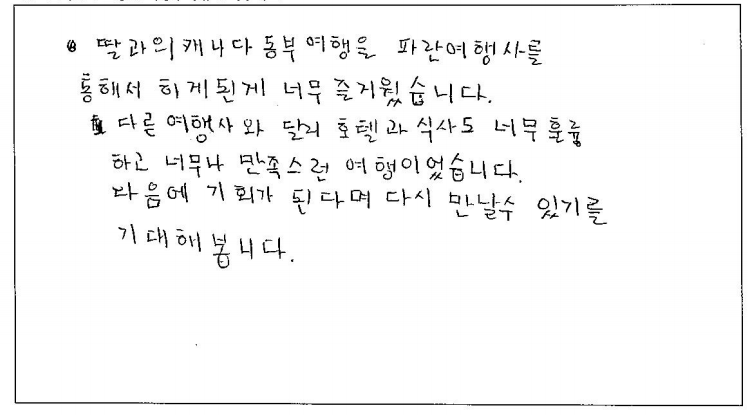 딸과의 캐나다 동부여행을 파란여행사를
통해서 하게된게 너무 즐거웠습니다.
다른 여행사와 달리 호텔과 식사도 너무 훌륭
하고 너무나 만족스런 여행이었습니다.
다음에 기회가 된다며 다시 만날수 있기를
기대해봅니다.